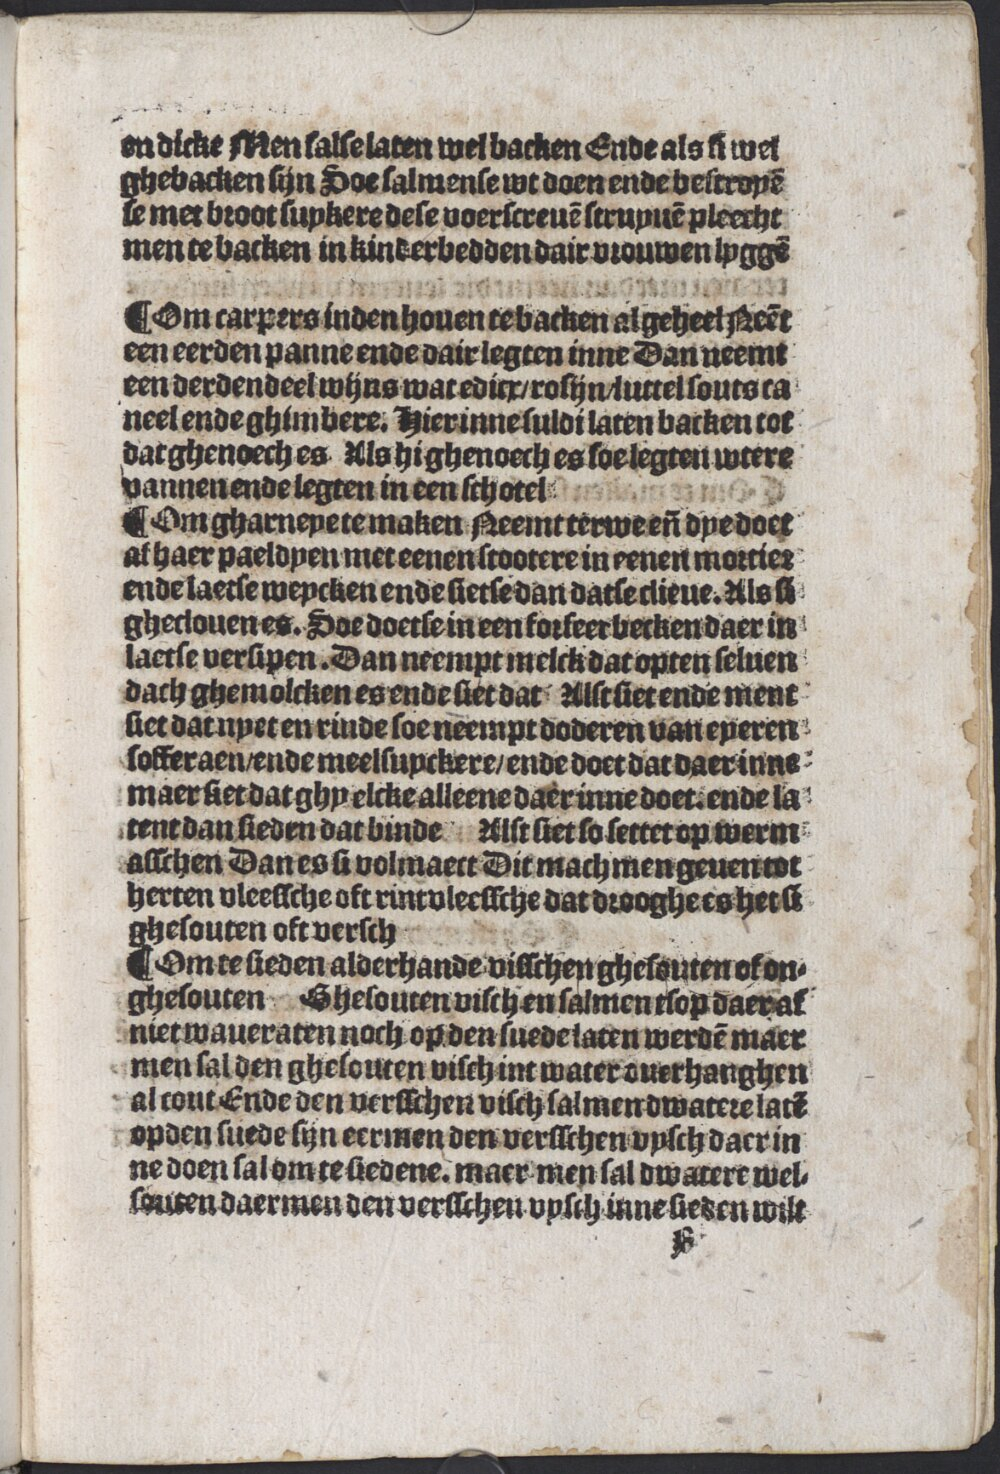 en dicke Men salse laten wel backen Ende als si wel
ghebacken sijn Soe salmense wt doen ende bestroyē
se met broot suykere dese voerscreuē struyuē pleecht
men te backen in kinderbedden dair vrouwen lyggē
¶ Om carpers inden houen te backen al geheel Neēt
een eerden panne ende dair legten inne Dan neemt
een derdendeel wijns wat edicx/rosijn/luttel souts ca
neel ende ghimbere. Hier inne suldi laten backen tot
dat ghenoech es Als hi ghenoech es soe legten wtere
pannen ende legten in een schotel
¶ Om gharneye te maken Neemt terwe en̄ dye doet
af haer paeldyen met eenen stootere in eenen mortier
ende laetse weycken ende sietse dan datse clieue. Als si
gheclouen es. Soe doetse in een forseer becken daer in
laetse versipen. Dan neempt melck dat opten seluen
dach ghemolcken es ende siet dat Alst siet ende ment
siet dat nyet en rinde soe neempt doderen van eyeren
sofferaen/ende meelsuyckere/ende doet dat daer inne
maer siet dat ghy elcke alleene daer inne doet. ende la
tent dan sieden dat binde Alst siet so settet op werm
asschen Dan es si volmaect Dit mach men geuen tot
herten vleessche oft rintvleessche dat drooghe es het si
ghesouten oft versch
¶ Om te sieden alderhande visschen ghesouten of on-
ghesouten Ghesouten visch en salmen tsop daer af
niet waueraten noch op den suede laten werdē maer
men sal den ghesouten visch int water ouerhanghen
al cout Ende den versschen visch salmen dwatere latē
opden suede sijn eermen den versschen vysch daer in
ne doen sal om te siedene. maer men sal dwatere wel
souten daermen den versschen vysch inne sieden wilt
B